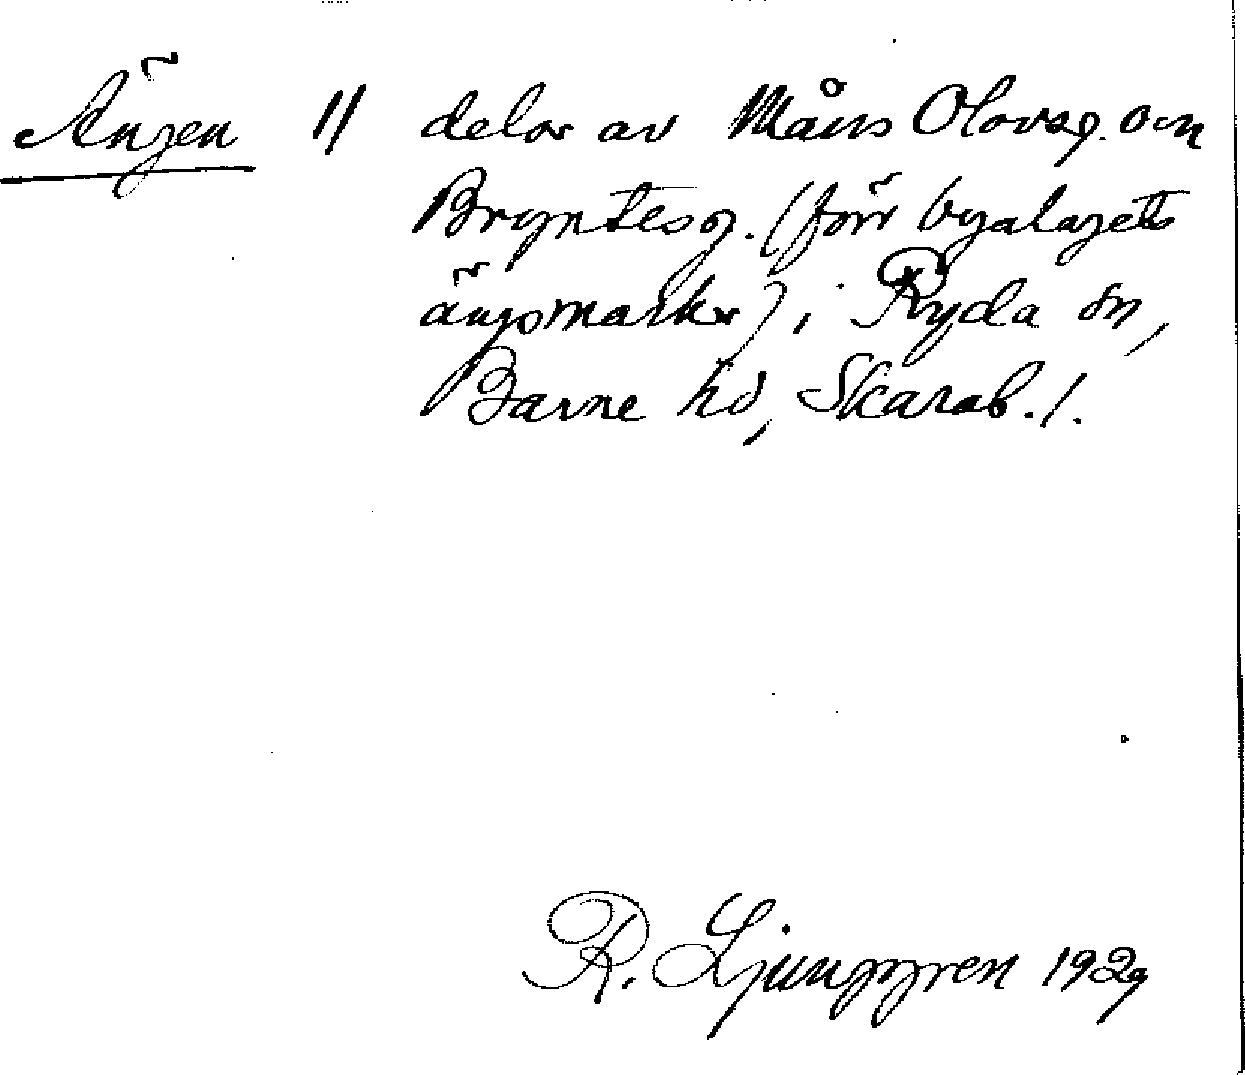 Ängen // delar av Måns Olovsg. och
Bryntesg. (förr byalagets
ängsmark) i Ryda sn,
Barne hd, Skarab. l.
R. Ljunggren 1929